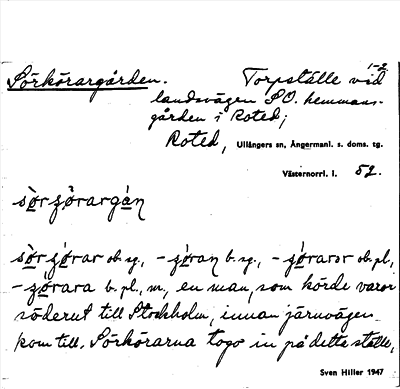 1-2.
Sörkörargården. Torpställe vid
landsvägen SO. hemmans-
gården i Roted;
Roted, Ullångers sn, Ångermanl. s. doms. tg.
Västernorrl. l. 52.
sòrʒo̲rargán
sòr ʒo̲rar ob. sg., -ʒo̲ran b. sg., -ʒo̲raror ob. pl,
-ʒo̲rara b. pl., m., en man, som körde varor
söderut till Stockholm, innan järnvägen
kom till. Sörkörarna togo in på detta ställe,
Sven Hiller 1947